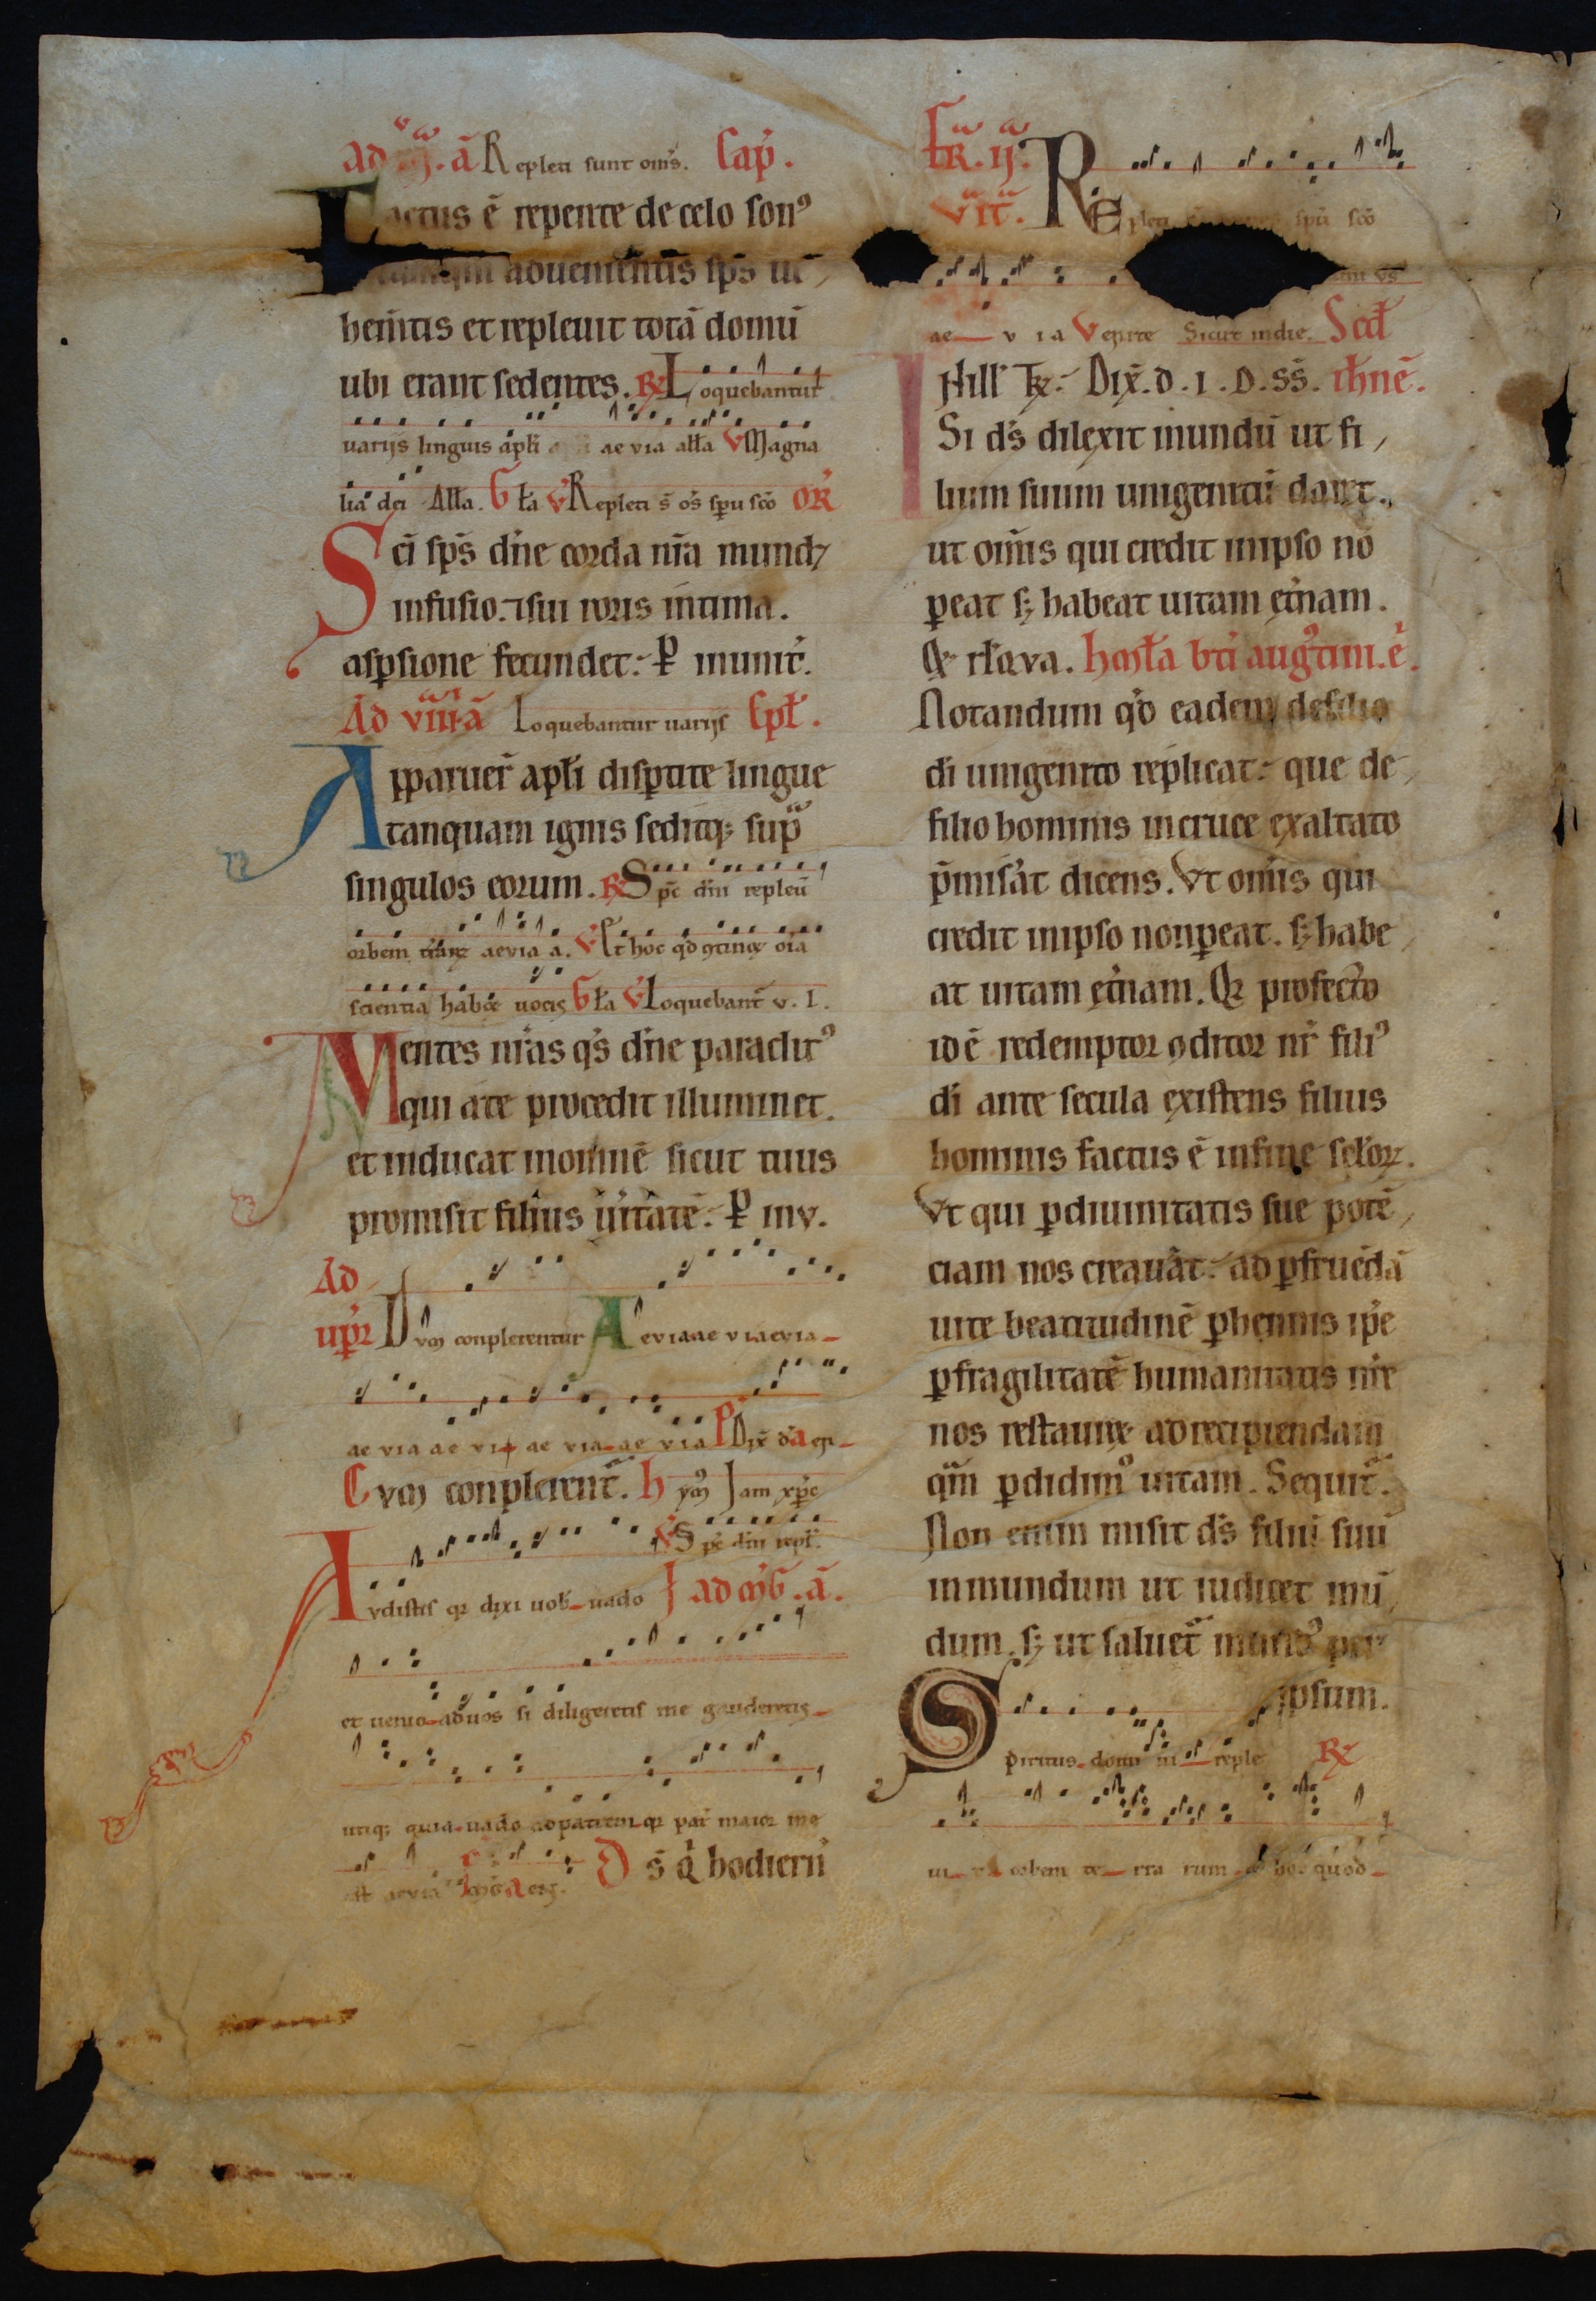 ad . ā Repleti sunt om̄s. cap̄.
Factus ē repente de celo son⁹
aduenientis sp̄s ue,
hem̄tis et repleuit totā domū
ubi erant sedentes. ℟ Loquebantur
uarijs linguis apl̄i ae via all̄a ℣ Magna
lia dei All̄a. Gl̄a ℣ Repleti s̄ om̄s sp̄u sc̄o OR̄
Sc̄i sp̄s dn̄e corda nr̄a mund⁊
infusio. ⁊ sui roris intima.
asp̄sione fecundet. P̲ in unit̄.
Ad viiii ā Loquebantur uarijs cpl̄.
Apparuer̄ apl̄i disp̄tite lingue
tanquam ignis seditq; sup̄
singulos eorum. ℟ Sp̄c dn̄i repleu̅
orbem t̄rarꝝ aevia a. ℣ Et hoc qd̄ ꝯtinꝫ oīa
scientiā habꝫ uocis Gl̄a ℣ Loquebant̄ v. l.
Mentes nr̄as qs̄ dn̄e paraclit⁹
qui a te procedit illuminet.
et inducat in omnē sicut tuus
promisit filius ueritatē. P̲ in v.
Ad
up̄r Dum conplerentur Aeviaae viaevia
ae via ae via ae via ae via P̄ Dix̄ dn̄ a ep
Cum conplerent̄. hym̄ Iam xp̄c
℣ Sp̄c dn̄i repl̄.
Audistis qꝛ dixi uob̄ uado ad mḡ. ā.
et uenio ad uos si diligeretis me gauderetis
utiq; quia uado ad patrem qꝛ pat̄ maior me
est aevia D s̄ q̇ hodiern̄
fr̄. ij.
vīt. Repleti sp̄u sc̄o
ae v ia Venite Sicut in die. Scd̄
In ill̄ t̄ꝑ. Dix̄. d. i. d. ss̄. ih̄nē.
Si ds̄ dilexit mundū ut fi,
lium suum unigenitū daret.
ut om̄is qui credit in ipso nō
p̲eat sꝫ habeat uitam et̄nam.
& rl̄qva. Om̄la bt̄i aug⁹tini. ē.
Notandum qd̄ eadem de filio
di unigenito replicat. que de,
filio hominis in cruce exaltato
p̄misāt dicens. Vt om̄is qui
credit in ipso non p̲eat. sꝫ habe,
at uitam et̄nam. Qꝛ profecto
idē redemptor ꝯditor nr̄ fili⁹
di ante secula existens filius
hominis factus ē in fine sc̄lorꝝ.
Vt qui p̲ diuinitatis sue potē,
ciam nos creauāt. ad p̲fruēdā
uite beatitudinē p̲hennis ip̄e
p̲ fragilitatē humanitatis nr̄e
nos restauꝛꝫ ad recipiendam
qm̄ p̲didim⁹ uitam. Sequit̄.
Non enim misit ds̄ filiū suū
in mundum ut iudicet mū,
dum. sꝫ ut saluet̄ mund⁹ per
ipsum.
Spiritus domi ni reple ℟
ui orbem te rra rum hoc quod